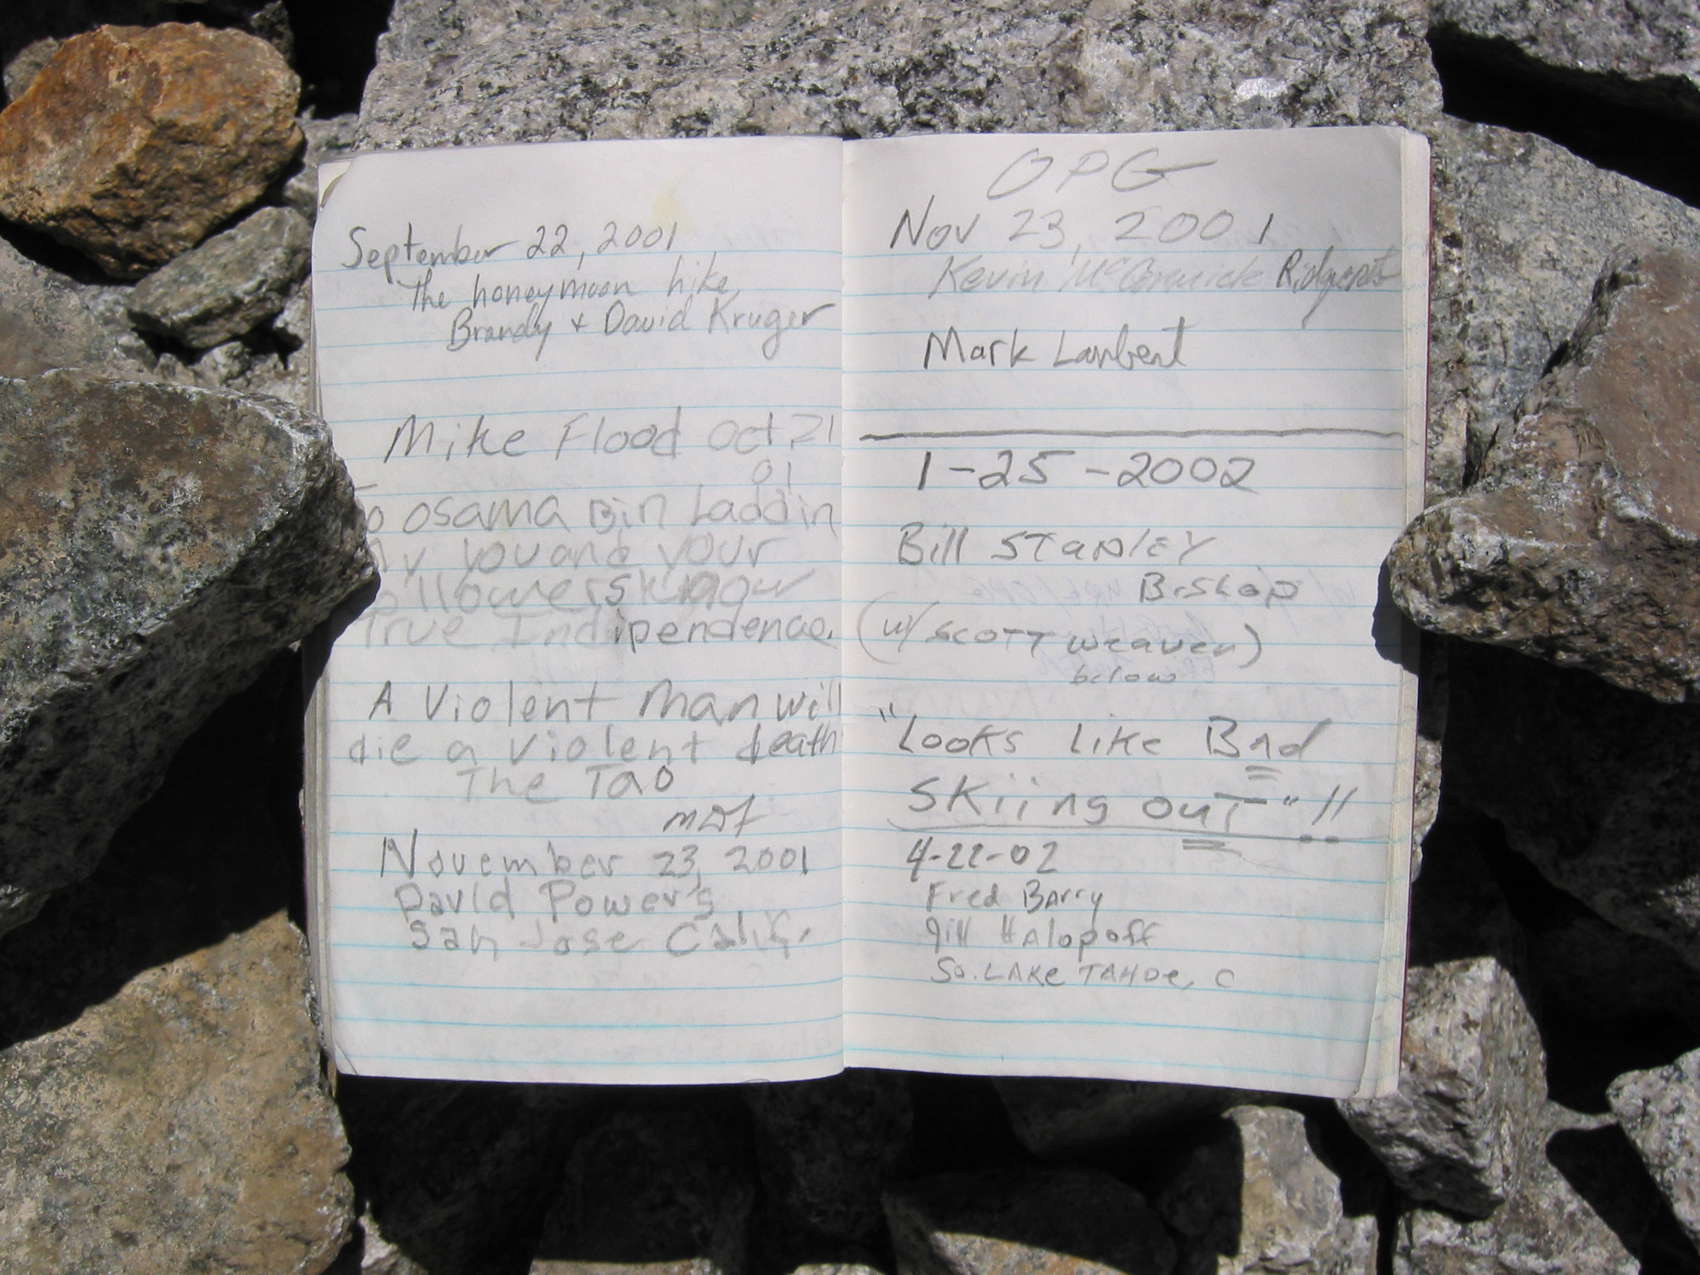 September 22, 2001
The honeymoon hike
Brandy + David Kruger
Mike Flood Oct 21
01
To Osama Bin Laddin
you and your
followers know
True Indipendence.
A Violent Man will
die a violent death
The Tao
MDF
November 23, 2001
David Powers
San Jose Calif.
OPG
Nov 23, 2001
Kevin McCormick
Mark Lambert
1-25-2002
Bill Stapley
Bishop
(w/ Scott Weaver)
below
"Looks Like Bad
Skiing out"!!
4-22-02
Fred Barry
Jill Halopoff
So. Lake Tahoe, C